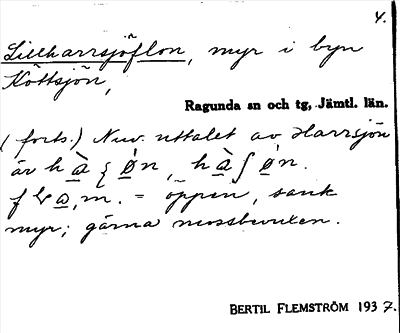 4.
Lillharrsjöflon, myr i byn
Köttsjön,
Ragunda sn och tg, Jämtl. län.
(forts.) Nuv. uttalet av Harrsjön
är
f m. = öppen, sank
myr; gärna mossbevuxen.
BERTIL FLEMSTRÖM 1937.